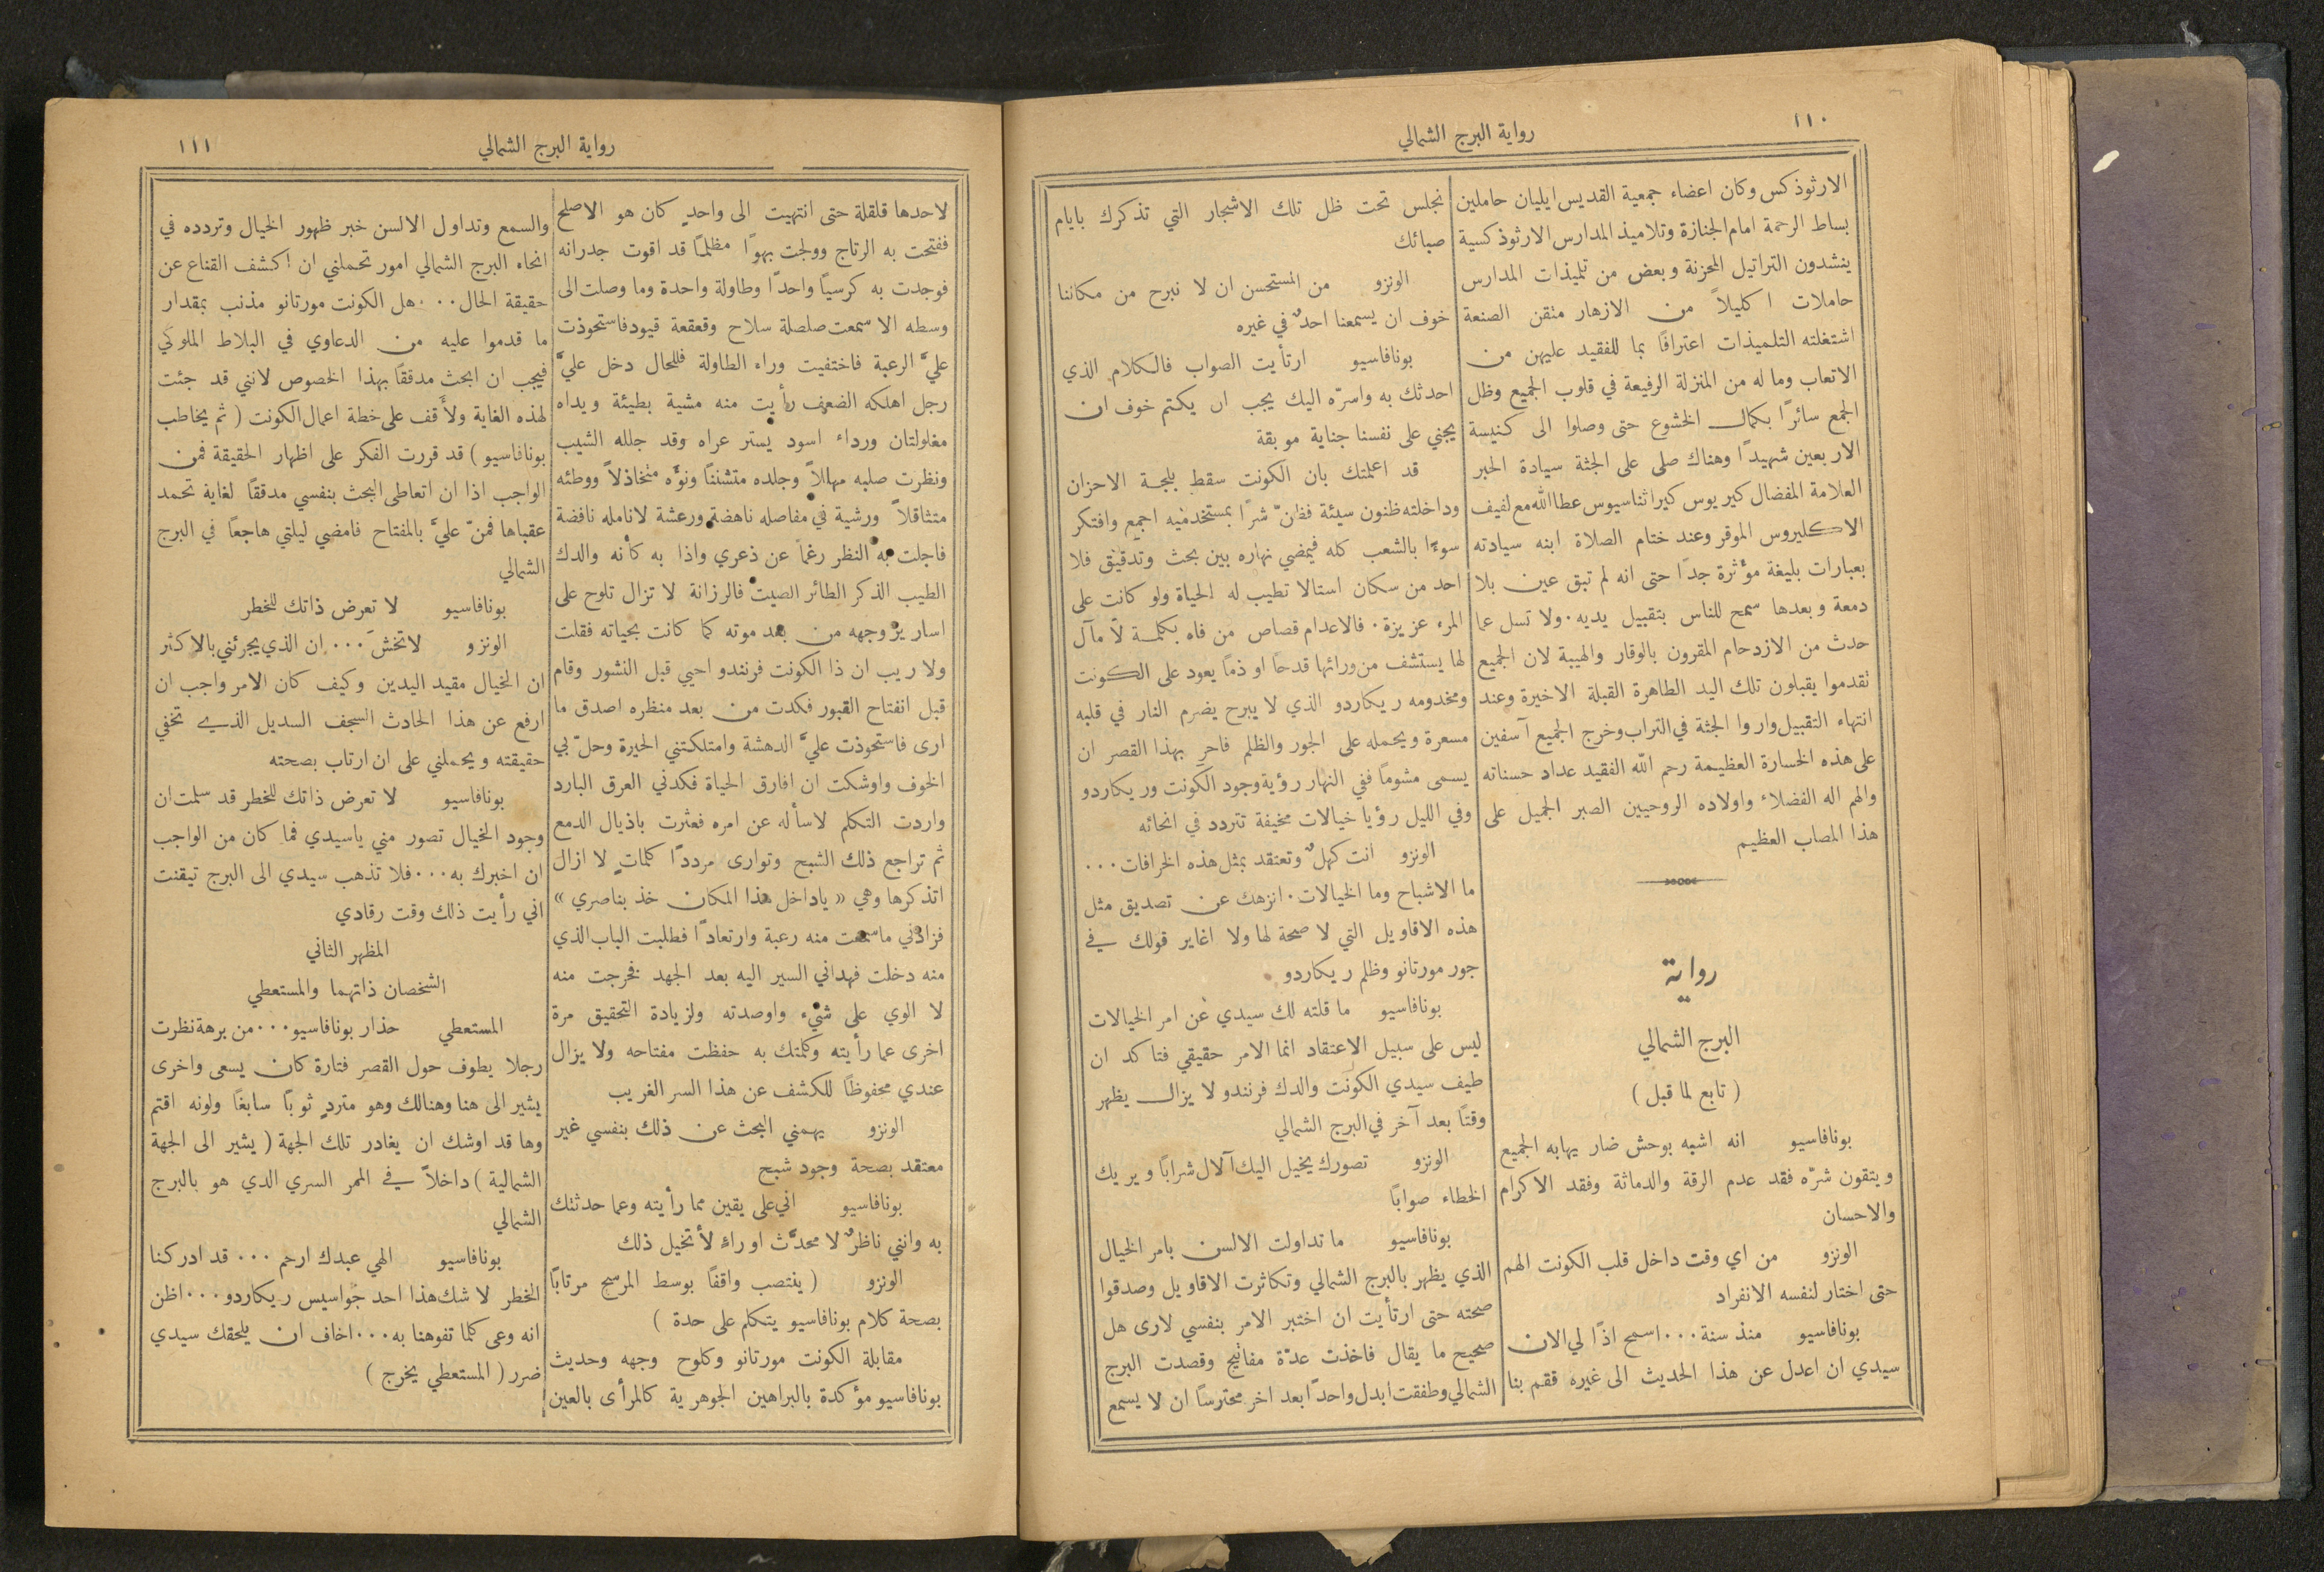 ١١٠
رواية البرج الشمالي
الارثوذكس وكان اعضاء جمعية القديس ايليان حاملين
بساط الرحمة امام الجنازة وتلاميذ المدارس الارثوذكسية
ينشدون التراتيل المحزنة وبعض من تلميذات المدارس
حاملات اكليلاً من الازهار متقن الصنعة
اشتغلته التلميذات اعترافًا بما للفقيد عليهن من
الاتعاب وما له من المنزلة الرفيعة في قلوب الجميع وظل
الجمع سائرًا بكمال الخشوع حتى وصلوا الى كنيسة
الاربعين شهيدًا وهناك صلى على الجثة سيادة الحبر
العلامة المفضال كيريوس كيراثناسيوس عطاالله مع لفيف
الاكليروس الموقر وعند ختام الصلاة ابنه سيادته
بعبارات بليغة مؤثرة جدًا حتى انه لم تبق عين بلا
دمعة وبعدها سمح للناس بتقبيل يديه. ولا تسل عما
حدث من الازدحام المقرون بالوقار والهيبة لان الجميع
تقدموا يقبلون تلك اليد الطاهرة القبلة الاخيرة وعند
انتهاء التقبيل واروا الجثة في التراب وخرج الجميع آسفين
على هذه الخسارة العظيمة رحم الله الفقيد عداد حسناته
والهم اله الفضلاء واولاده الروحيين الصبر الجميل على
هذا المصاب العظيم
رواية
البرج الشمالي
( تابع لما قبل )
بونافاسيو انه اشبه بوحش ضار يهابه الجميع
ويتقون شرّه فقد عدم الرقة والدماثة وفقد الاكرام
والاحسان
الونزو من اي وقت داخل قلب الكونت الهم
حتى اختار لنفسه الانفراد
بونافاسيو منذ سنة ... اسمح اذًا لي الان
سيدي ان اعدل عن هذا الحديث الى غيره فقم بنا
نجلس تحت ظل تلك الاشجار التي تذكرك بايام
صبائك
الونزو من المستحسن ان لا نبرح من مكاننا
خوف ان يسمعنا احدٌ في غيره
بونافاسيو ارتأيت الصواب فالكلام الذي
احدثك به واسرّه اليك يجب ان يكتم خوف ان
يجني على نفسنا جناية موبقة
قد اعلمتك بان الكونت سقط بلجة الاحزان
وداخلته ظنون سيئة فظنّ شرًا بمستخدميه اجمع وافتكر
سوءًا بالشعب كله فيمضي نهاره بين بحث وتدقيق فلا
احد من سكان استالا تطيب له الحياة ولو كانت على
المرء عزيزة. فالاعدام قصاص من فاه بكلمة لا مآل
لها يستشف من ورائها قدحًا او ذمًا يعود على الكونت
ومخدومه ريكاردو الذي لا يبرح يضرم النار في قلبه
مسعرة ويحمله على الجور والظلم فاحرِ بهذا القصر ان
يسمى مشومًا ففي النهار رؤية وجود الكونت وريكاردو
وفي الليل رؤيا خيالات مخيفة تتردد في انحائه
الونزو انت كهلٌ وتعتقد بمثل هذه الخرافات ...
ما الاشباح وما الخيالات. انزهك عن تصديق مثل
هذه الاقاويل التي لا صحة لها ولا اغاير قولك في
جور مورتانو وظلم ريكاردو
بونافاسيو ما قلته لك سيدي عن امر الخيالات
ليس على سبيل الاعتقاد انما الامر حقيقي فتاكد ان
طيف سيدي الكونت والدك فرنندو لا يزال يظهر
وقتًا بعد آخر في البرج الشمالي
الونزو تصورك يخيل اليك آلال شرابًا ويريك
الخطاء صوابًا
بونافاسيو ما تداولت الالسن بامر الخيال
الذي يظهر بالبرج الشمالي وتكاثرت الاقاويل وصدقوا
صحته حتى ارتأيت ان اختبر الامر بنفسي لارى هل
صحيح ما يقال فاخذت عدّة مفاتيح وقصدت البرج
الشمالي وطفقت ابدل واحدًا بعد اخر محترسًا ان لا يسمع
رواية البرج الشمالي
١١١
لاحدها قلقلة حتى انتهيت الى واحدٍ كان هو الاصلح
ففتحت به الرتاج وولجت بهوًا مظلمًا قد اقوت جدرانه
فوجدت به كرسيًا واحدًا وطاولة واحدة وما وصلت الى
وسطه الا سمعت صلصلة سلاح وقعقعة قيود فاستحوذت
عليَّ الرعبة فاختفيت وراء الطاولة فللحال دخل عليَّ
رجل اهلكه الضعف رأيت منه مشية بطيئة ويداه
مغلولتان ورداء اسود يستر عراه وقد جلله الشيب
ونظرت صلبه مهالاً وجلده متشننًا ونوَّه متخاذلاً ووطئه
متثاقلاً ورشية في مفاصله ناهضة ورعشة لانامله نافضة
فاجلت به النظر رغمًا عن ذعري واذا به كأنه والدك
الطيب الذكر الطائر الصيت فالرزانة لا تزال تلوح على
اسارير وجهه من بعد موته كما كانت بحياته فقلت
ولا ريب ان ذا الكونت فرنندو احيي قبل النشور وقام
قبل انفتاح القبور فكدت من بعد منظره اصدق ما
ارى فاستحوذت عليَّ الدهشة وامتلكتني الحيرة وحلّ بي
الخوف واوشكت ان افارق الحياة فكدني العرق البارد
واردت التكلم لاسأله عن امره فعثرت باذيال الدمع
ثم تراجع ذلك الشبح وتوارى مرددًا كلماتٍ لا ازال
اتذكرها وهي « ياداخل هذا المكان خذ بناصري »
فزادني ما سمعت منه رعبة وارتعادًا فطلبت الباب الذي
منه دخلت فهداني السير اليه بعد الجهد فخرجت منه
لا الوي على شيء واوصدته ولزيادة التحقيق مرة
اخرى عما رأيته وكلمتك به حفظت مفتاحه ولا يزال
عندي محفوظًا للكشف عن هذا السر الغريب
الونزو يهمني البحث عن ذلك بنفسي غير
معتقد بصحة وجود شبح
بونافاسيو اني على يقين مما رأيته وعما حدثتك
به وانني ناظرٌ لا محدَّث او راءٍ لأتخيل ذلك
الونزو ( ينتصب واقفًا بوسط المرسح مرتابًا
بصحة كلام بونافاسيو يتكلم على حدة )
مقابلة الكونت مورتانو وكلوح وجهه وحديث
بونافاسيو مؤكدة بالبراهين الجوهرية كالمرأى بالعين
والسمع وتداول الالسن خبر ظهور الخيال وتردده في
انحاء البرج الشمالي امور تحملني ان اكشف القناع عن
حقيقة الحال ... هل الكونت مورتانو مذنب بمقدار
ما قدموا عليه من الدعاوي في البلاط الملوكي
فيجب ان ابحث مدققًا بهذا الخصوص لانني قد جئت
لهذه الغاية ولأقف على خطة اعمال الكونت ( ثم يخاطب
بونافاسيو ) قد قررت الفكر على اظهار الحقيقة فمن
الواجب اذا ان اتعاطى البحث بنفسي مدققًا لغاية تحمد
عقباها فمنّ عليَّ بالمفتاح فامضي ليلتي هاجعًا في البرج
الشمالي
بونافاسيو لا تعرض ذاتك للخطر
الونزو لا تخشَ ... ان الذي يجرئني بالاكثر
ان الخيال مقيد اليدين وكيف كان الامر واجب ان
ارفع عن هذا الحادث السجف السديل الذي تخفي
حقيقته ويحملني على ان ارتاب بصحته
بونافاسيو لا تعرض ذاتك للخطر قد سلمت ان
وجود الخيال تصور مني ياسيدي فما كان من الواجب
ان اخبرك به ... فلا تذهب سيدي الى البرج تيقنت
اني رأيت ذلك وقت رقادي
المظهر الثاني
الشخصان ذاتهما والمستعطي
المستعطي حذار بونافاسيو ... من برهة نظرت
رجلا يطوف حول القصر فتارة كان يسعى واخرى
يشير الى هنا وهنالك وهو متردٍ ثوبًا سابغًا ولونه اقتم
وها قد اوشك ان يغادر تلك الجهة ( يشير الى الجهة
الشمالية ) داخلاً في الممر السري الذي هو بالبرج
الشمالي
بونافاسيو الهي عبدك ارحم ... قد ادركنا
الخطر لا شك هذا احد جواسيس ريكاردو ... اظن
انه وعى كلما تفوهنا به ... اخاف ان يلحقك سيدي
ضرر ( المستعطي يخرج )